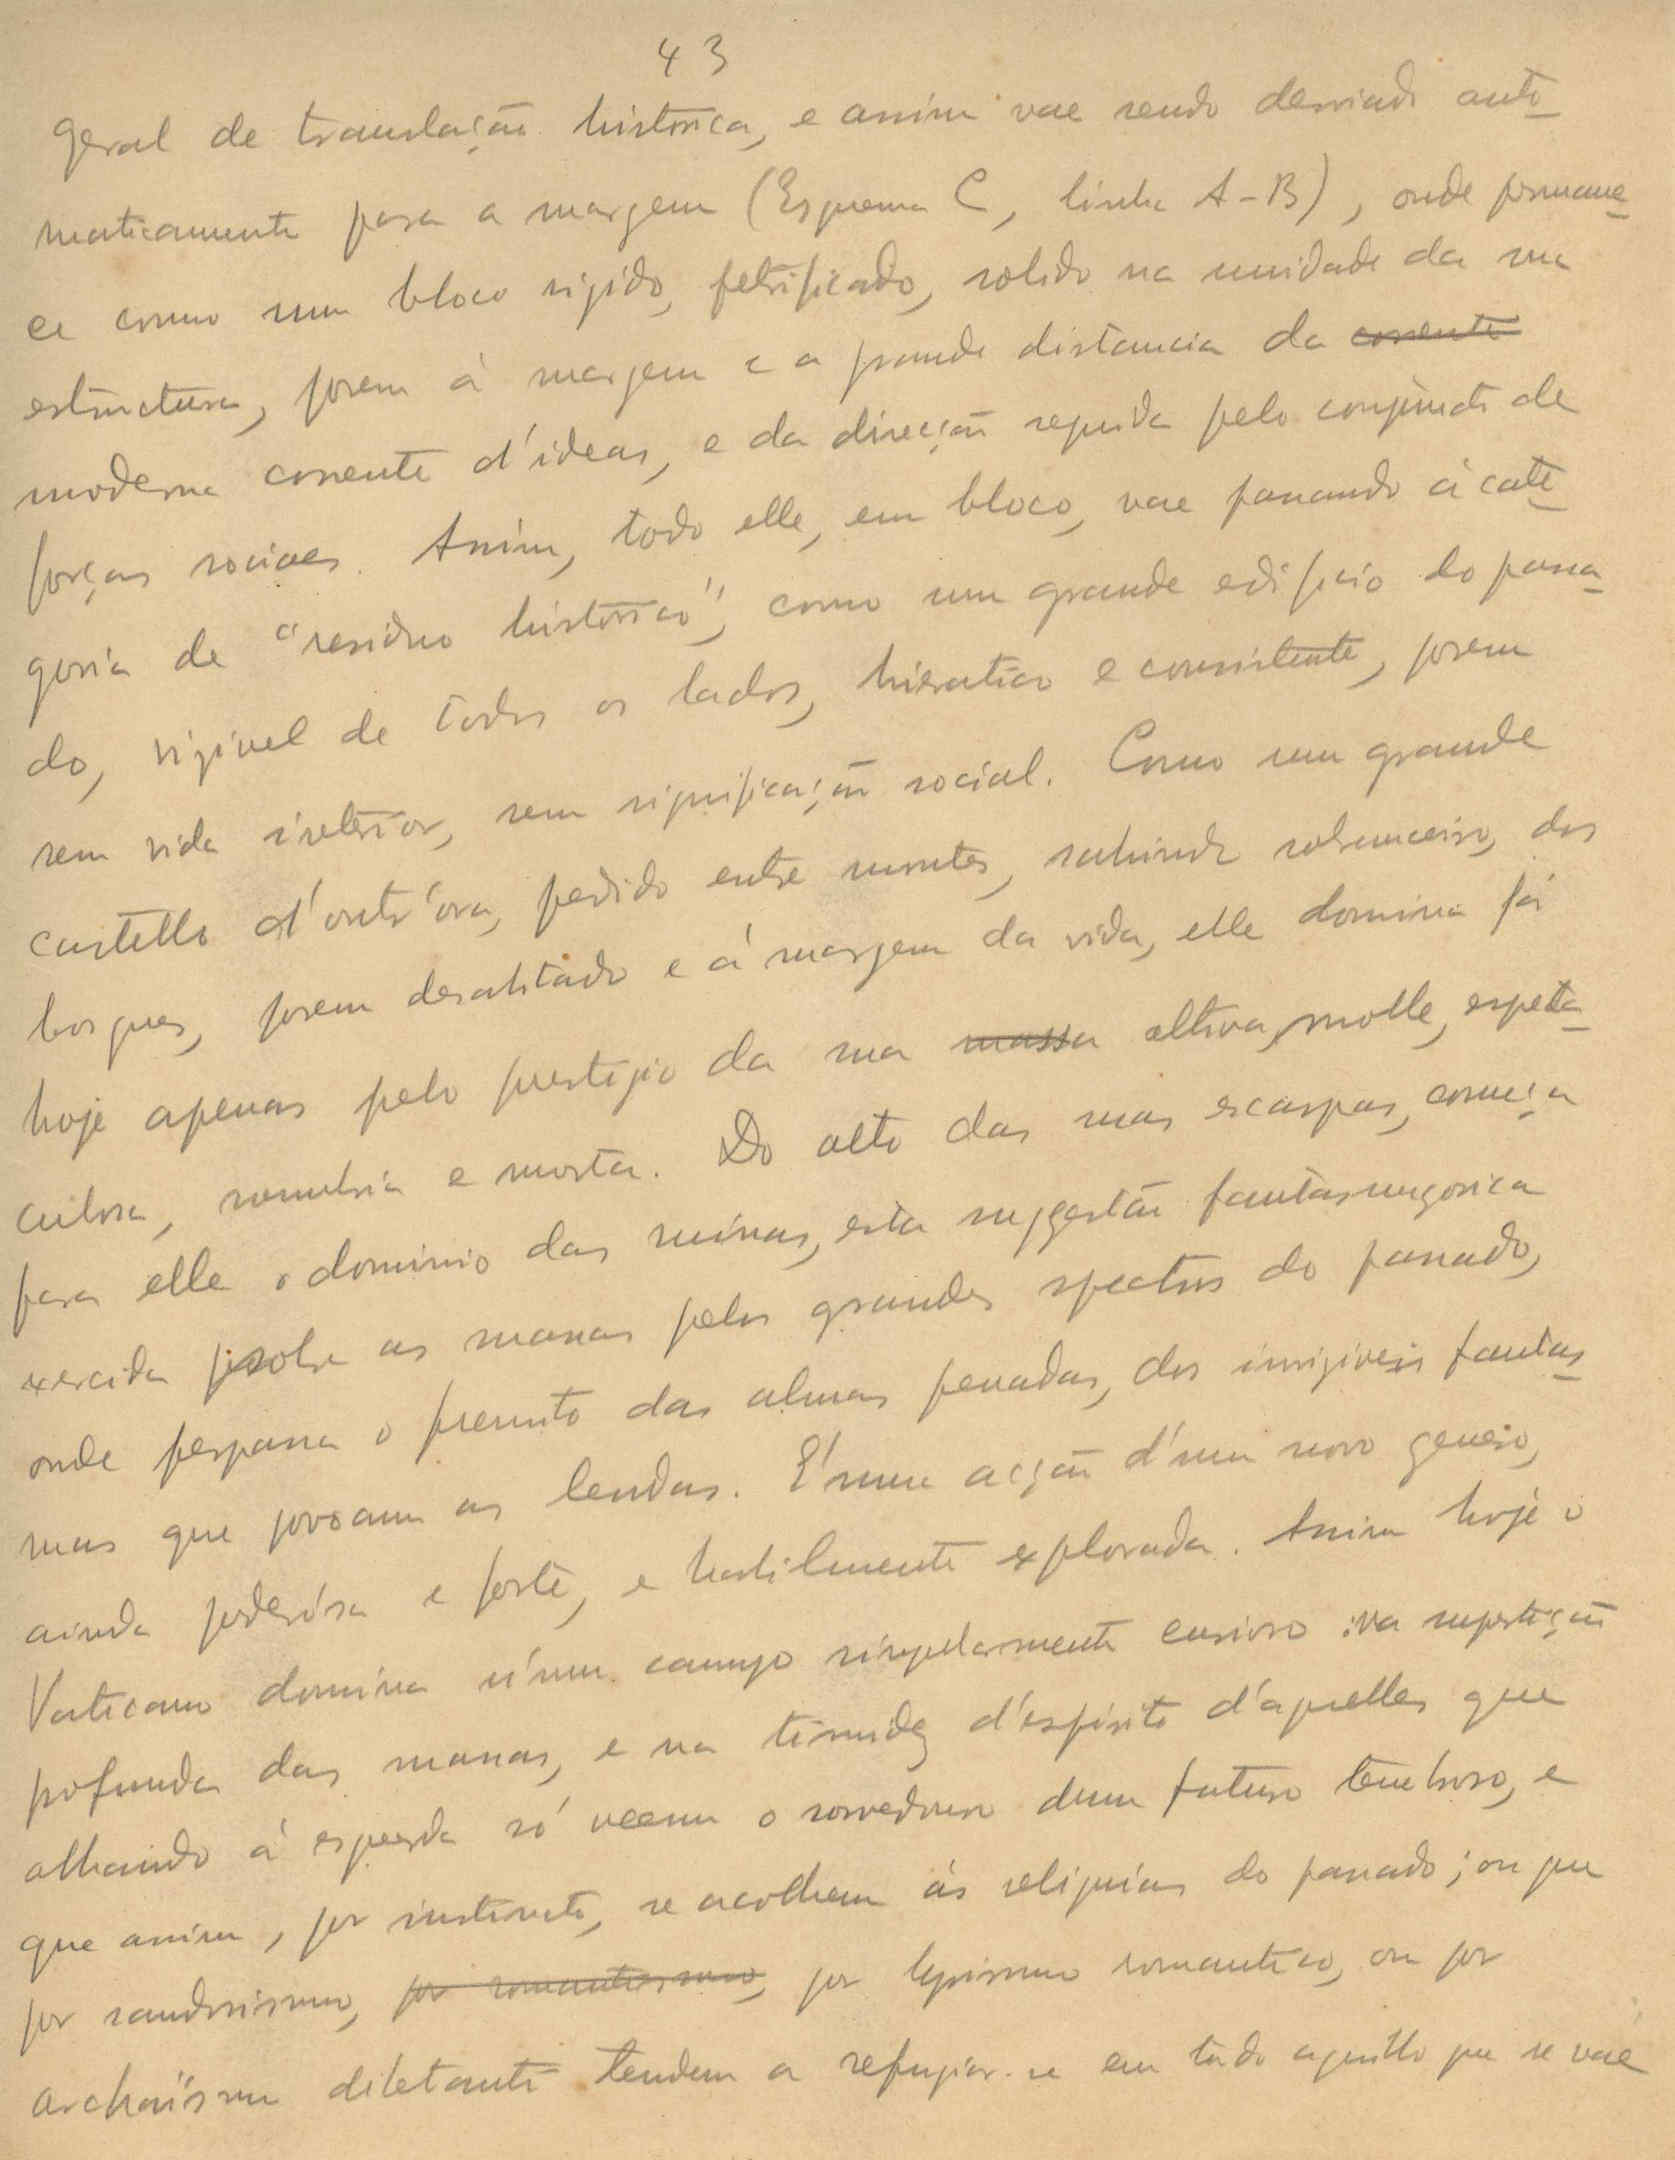 43
geral de translação historica, e assim vae sendo desviado auto-
maticamente para a margem (Esquema C, linha A-B), onde permane-
ce como um bloco rigido, petrificado, solido na unidade da sua
estructura, porem à margem e a grande distancia da corrente
moderna corrente d'ideas, e da direcção seguida pelo conjuncto de
forças sociaes. Assim, todo elle, em bloco, vae passando à cate-
goria de "residuo historico", como um grande edificio do passa-
do, vizivel de todos os lados, hieratico e consistente, porem
sem vida interior, sem significação social. Como um grande
castello d'outr'ora, perdido entre montes, subindo sobranceiro, dos
bosques, porem desabitado e á margem da vida, elle domina já
hoje apenas pelo prestigio da sua massa altiva, molle, espeta-
culosa, sombria e morta. Do alto das suas escarpas, começa
para elle o dominio das ruinas, esta suggestão fantasmagorica
exercida sobre as massas pelos grandes spectros do passado,
onde perpassa o fremito das almas penadas, dos inviziveis fantas-
mas que povoam as lendas. É uma acção d'um novo genero,
ainda poderósa e forte, e habilmente explorada. Assim hoje o
Vaticano domina n'um campo singularmente curioso: na superstição
profunda das massas, e na timidez d'espirito d'aquelles que
olhando á esquerda só veem o sorvedouro dum futuro tenebroso, e
que assim, por instincto, se acolhem ás reliquias do passado; ou que
por saudosismo, por romantissmo, por lyrismo romantico, ou por
archaïsmo diletante tendem a refugiar-se em tudo aquillo que se vae